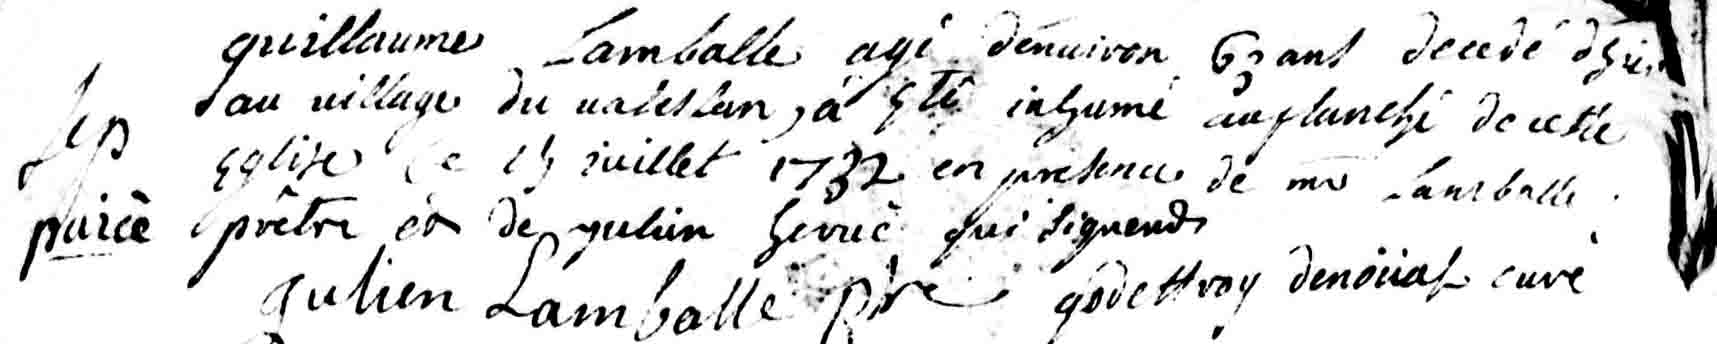 guillaume Lamballe agé denuiron 63 ans decedé dhier
au village du ualeslan, a eté inhumé au planché de cette
Sep eglise le 15 juillet 1732 en presence de mr Lamballe
païcé prêtre et de julien hervié qui signend
julien Lamballe ptre godeffroy denoüal curé